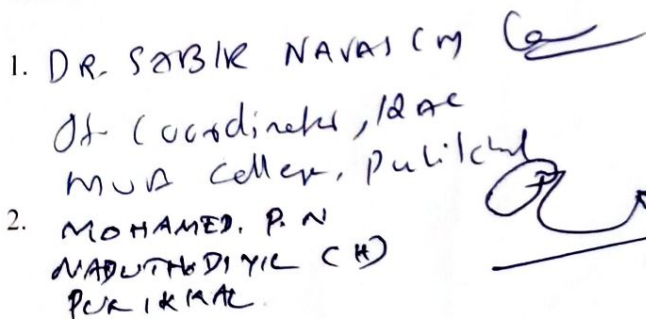 1. DR. SABIR NAVAS CM
Coordinator, IQAC
MUA College, Pulikkal
2. MOHAMED. P. N
NADUTHODIYIL (H)
PULIKKAL